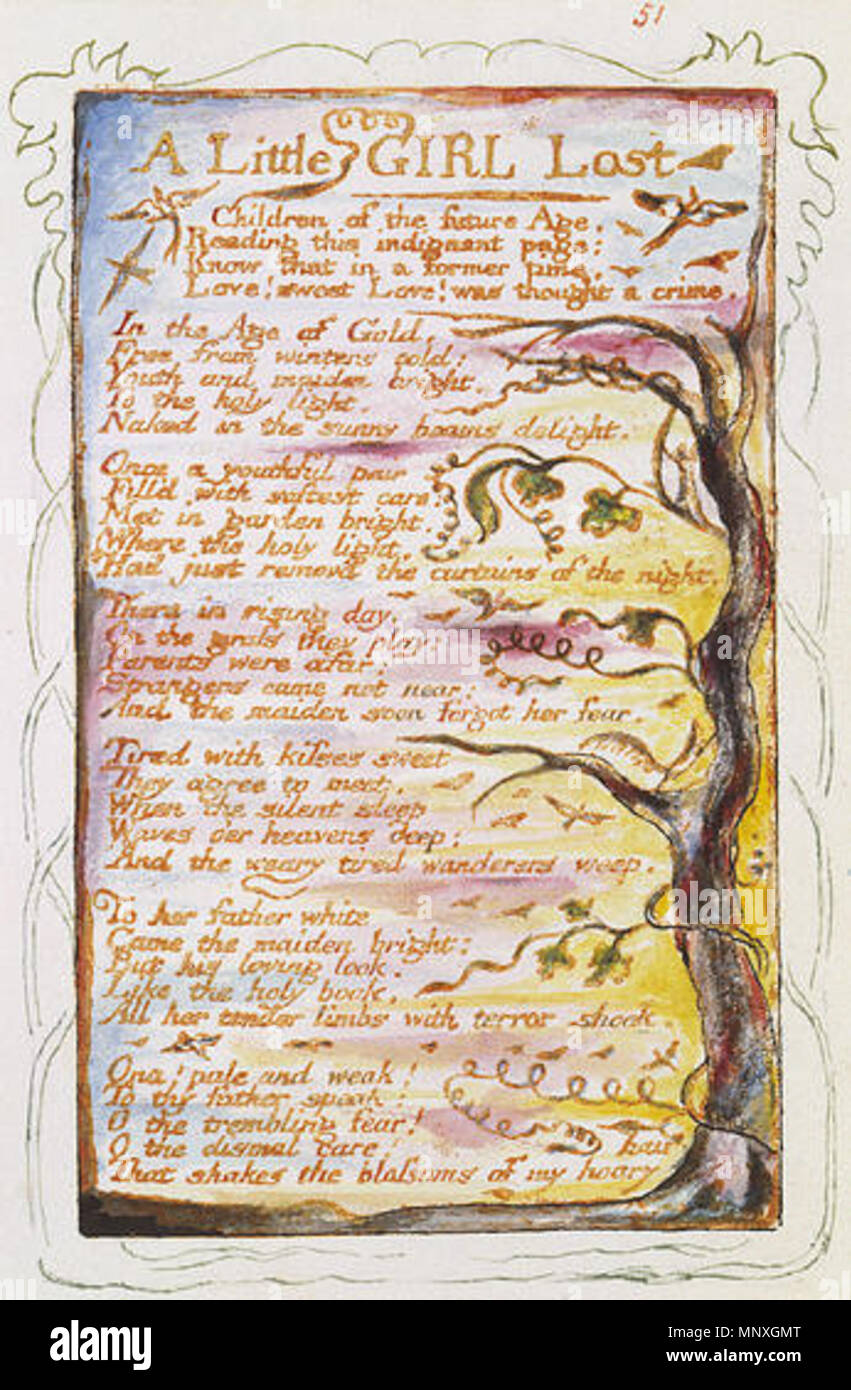 51
A Little GIRL Lost
Children of the future Age,
Reading this indignant page;
Know that in a former time,
Love! sweet Love! was thought a crime.
In the Age of Gold,
Free from winters cold:
Youth and maiden bright,
To the holy light,
Naked in the sunny beams delight.
Once a youthful pair
Fill'd with softest care:
Met in garden bright,
Where the holy light,
Had just removd the curtains of the night.
There in rising day,
On the grass they play:
Parents were afar:
Strangers came not near:
And the maiden soon forgot her fear.
Tired with kisses sweet
They agree to meet,
When the silent sleep
Waves o'er heavens deep:
And the weary tired wanderers weep.
To her father white
Came the maiden bright:
But his loving look,
Like the holy book,
All her tender limbs with terror shook.
Ona! pale and weak!
To thy father speak:
O the trembling fear!
O the dismal care!
That shakes the blossoms of my hoary hair
alamy
Image ID: MNXGMT
www.alamy.com